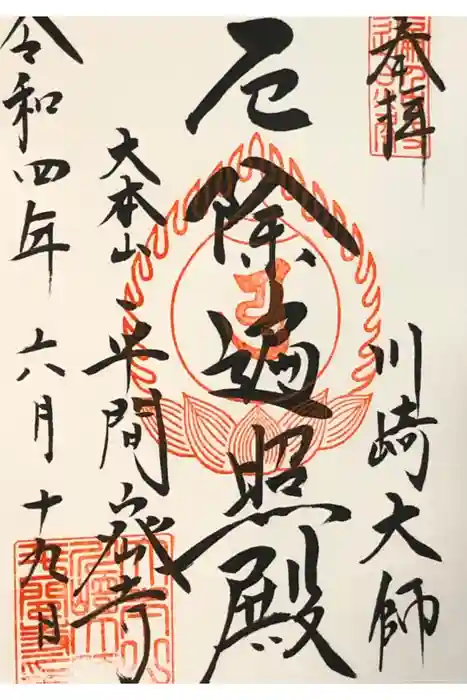 奉拝
川崎大師
厄除遍照殿
大本山
平間寺
令和四年 六月 十九日